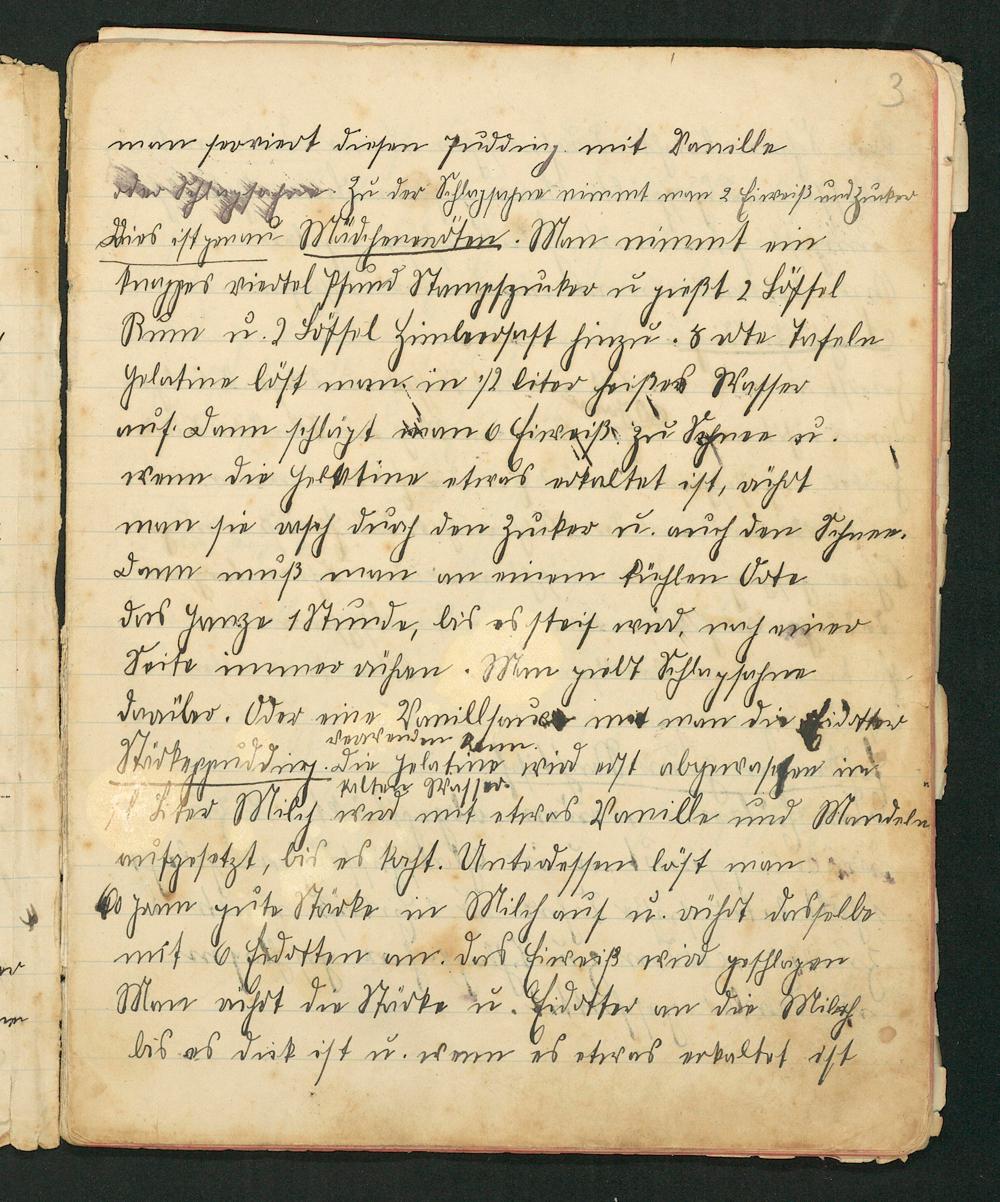 3
man serviert diesen Pudding mit Vanille
oder Schlagsahne. Zu der Schlagsahne nimmt man 2 Eiweiß und Zucker
Dies ist genau Mädchenerröten. Man nimmt ein
knappes viertel Pfund Stampfzucker u gießt 2 Löffel
Rum u. 2 Löffel Himbeersaft hinzu. 8 rote Tafeln
Gelatine löst man in 1/2 liter heißes Wasser
auf. Dann schlägt man 6 Eiweiß zu Schnee u.
wenn die Gelatine etwas erkaltet ist, rührt
man sie rasch durch den Zucker u. auch den Schnee.
Dann muß man an einem kühlen Orte
das Ganze 1 Stunde, bis es steif wird, nach einer
Seite immer rühren. Man giebt Schlagsahne
darüber. Oder eine Vanillsauce mit man die Eidotter
verwenden kann.
Stärkeppudding. Die Gelatine wird erst abgewaschen im
kalten Wasser.
Liter Milch wird mit etwas Vanille und Mandeln
aufgesetzt, bis es kocht. Unterdessen löst man
60 gram gute Stärke in Milch auf u. rührt dasselbe
mit 6 Eidotten an. das Eiweiß wird geschlagen
Man rührt die Stärke u. Eidotter an die Milch
bis es dick ist u. wenn es etwas erkaltet ist